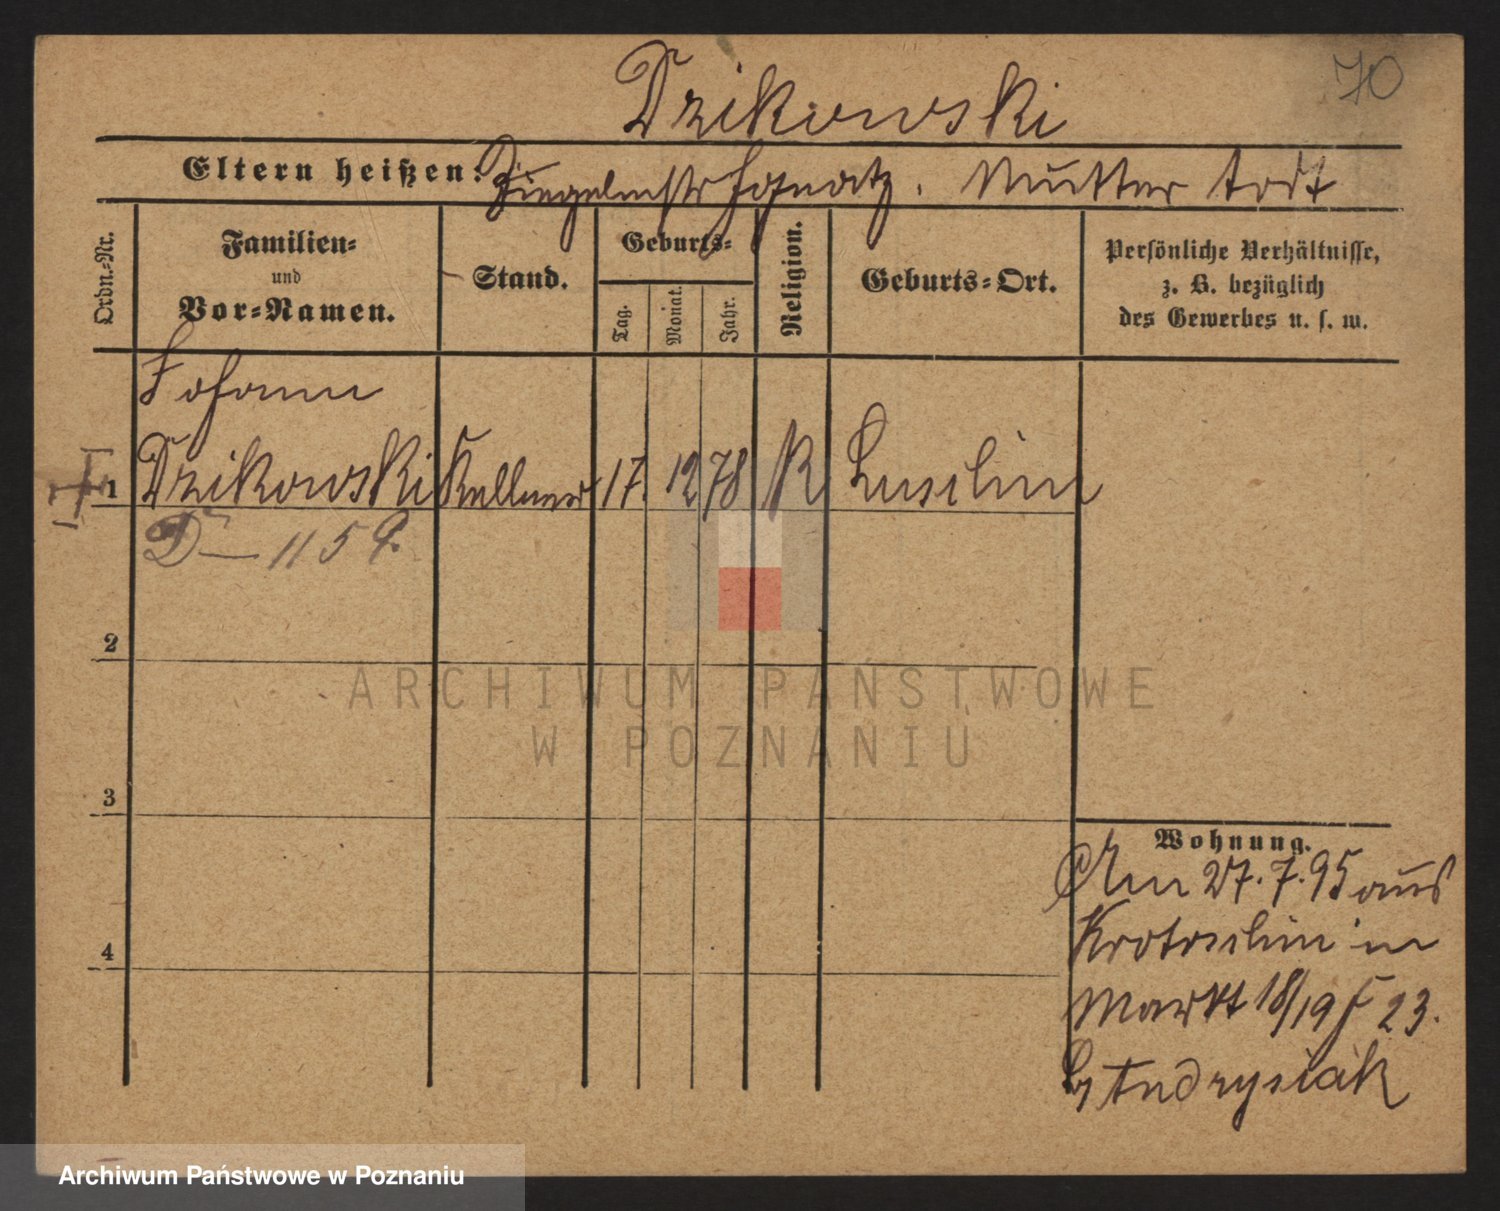 70
Dzikowski
Eltern heißen: Ziegelmstr Ignatz. Mutter todt
Ordn.-Nr.
Familien-
und
Vor-Namen.
Stand.
Geburts-
Tag.
Monat.
Jahr.
Religion.
Geburts-Ort.
Persönliche Verhältnisse,
z. B. bezüglich
des Gewerbes u. s. w.
Johann
1 Dzikowski Kellner 17. 12 78 K Luschin
D 1159.
2
3
4
Wohnung.
Am 27.7.95 aus
Krotoschin in
Markt 18/19 J 23.
b/ Andrysiak
ARCHIWUM PAŃSTWOWE
W POZNANIU
Archiwum Państwowe w Poznaniu